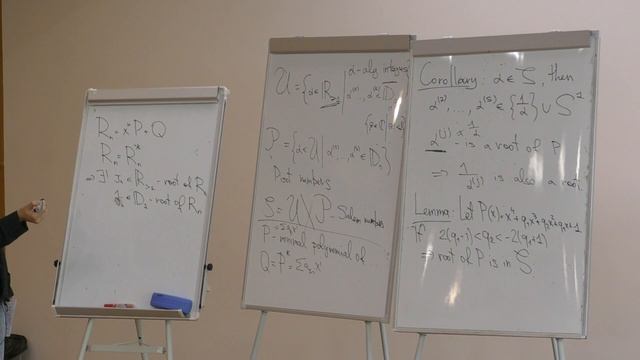 Rₙ = xⁿP + Q
Rₙ = Rₙ*
⇒ ∃! γ₁ ∈ ℝ>₁ - root of R
γ̄₂ ∈ D₁ - root of Rₙ
U = {α ∈ ℝ>₁ | α - alg integer
α⁽²⁾, ..., α⁽ᵈ⁾ ∈ D̄₁
P = {α ∈ U | α⁽²⁾, ..., α⁽ⁿ⁾ ∈ D₁}
Pisot numbers
S = U \ P - Salem numbers
P - minimal polynomial of
Q = P* = Σ
Corollary: α ∈ S, then
α⁽²⁾, ..., α⁽ˢ⁾ ∈ {1/α} ∪ S¹
α⁽ʲ⁾ ≠ 1/α - is a root of P
⇒ 1/α⁽ʲ⁾ is also a root
Lemma: Let P(x) = x⁴ + q₁x³ + q₂x² + q₁x + 1
If 2(q₁-1) < q₂ < -2(q₁+1)
⇒ root of P is in S